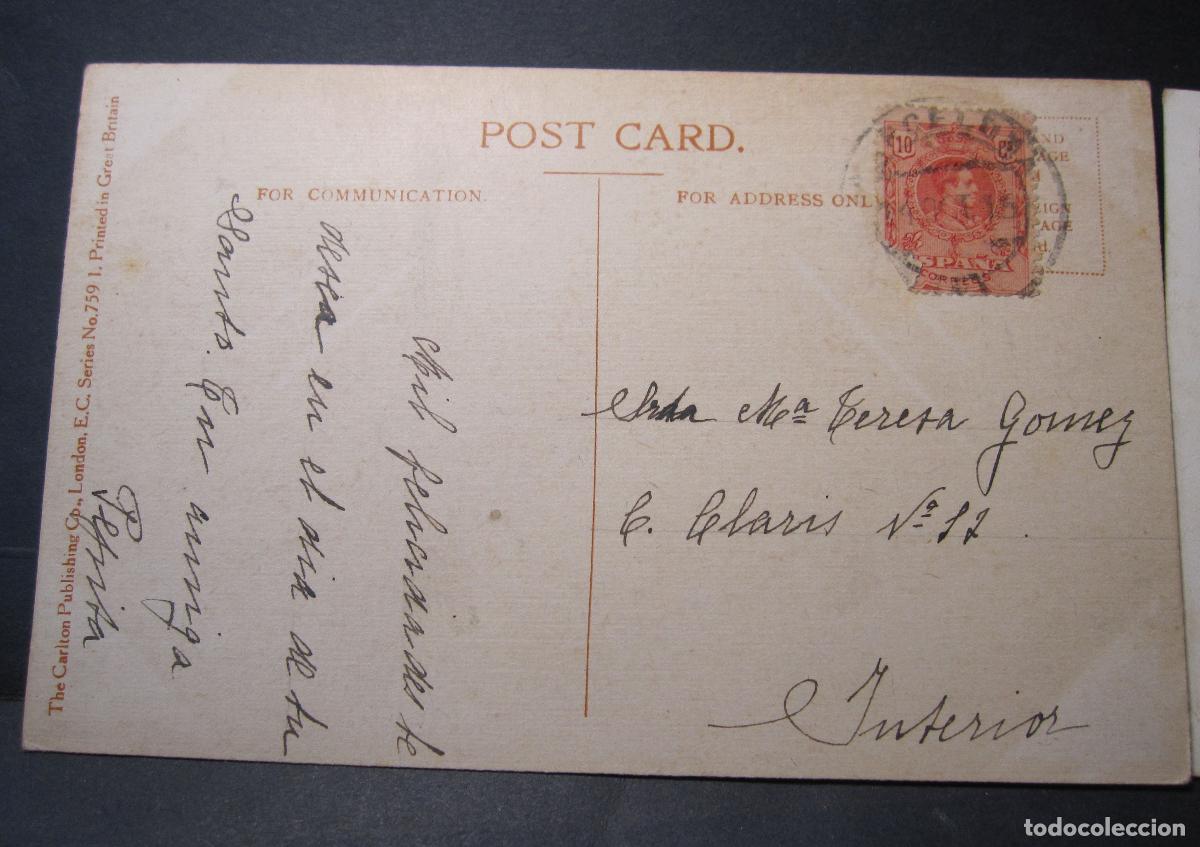 POST CARD.
FOR COMMUNICATION.
FOR ADDRESS ONLY
The Carlton Publishing Co., London, E.C. Series No. 759 1. Printed in Great Britain
Mil felicidades te
desea en el dia de tu
Santo. Tu amiga
Pepita
10 Cs
ESPAÑA
CORREOS
Srta Mª Teresa Gomez
C. Claris Nº
Interior
todocoleccion